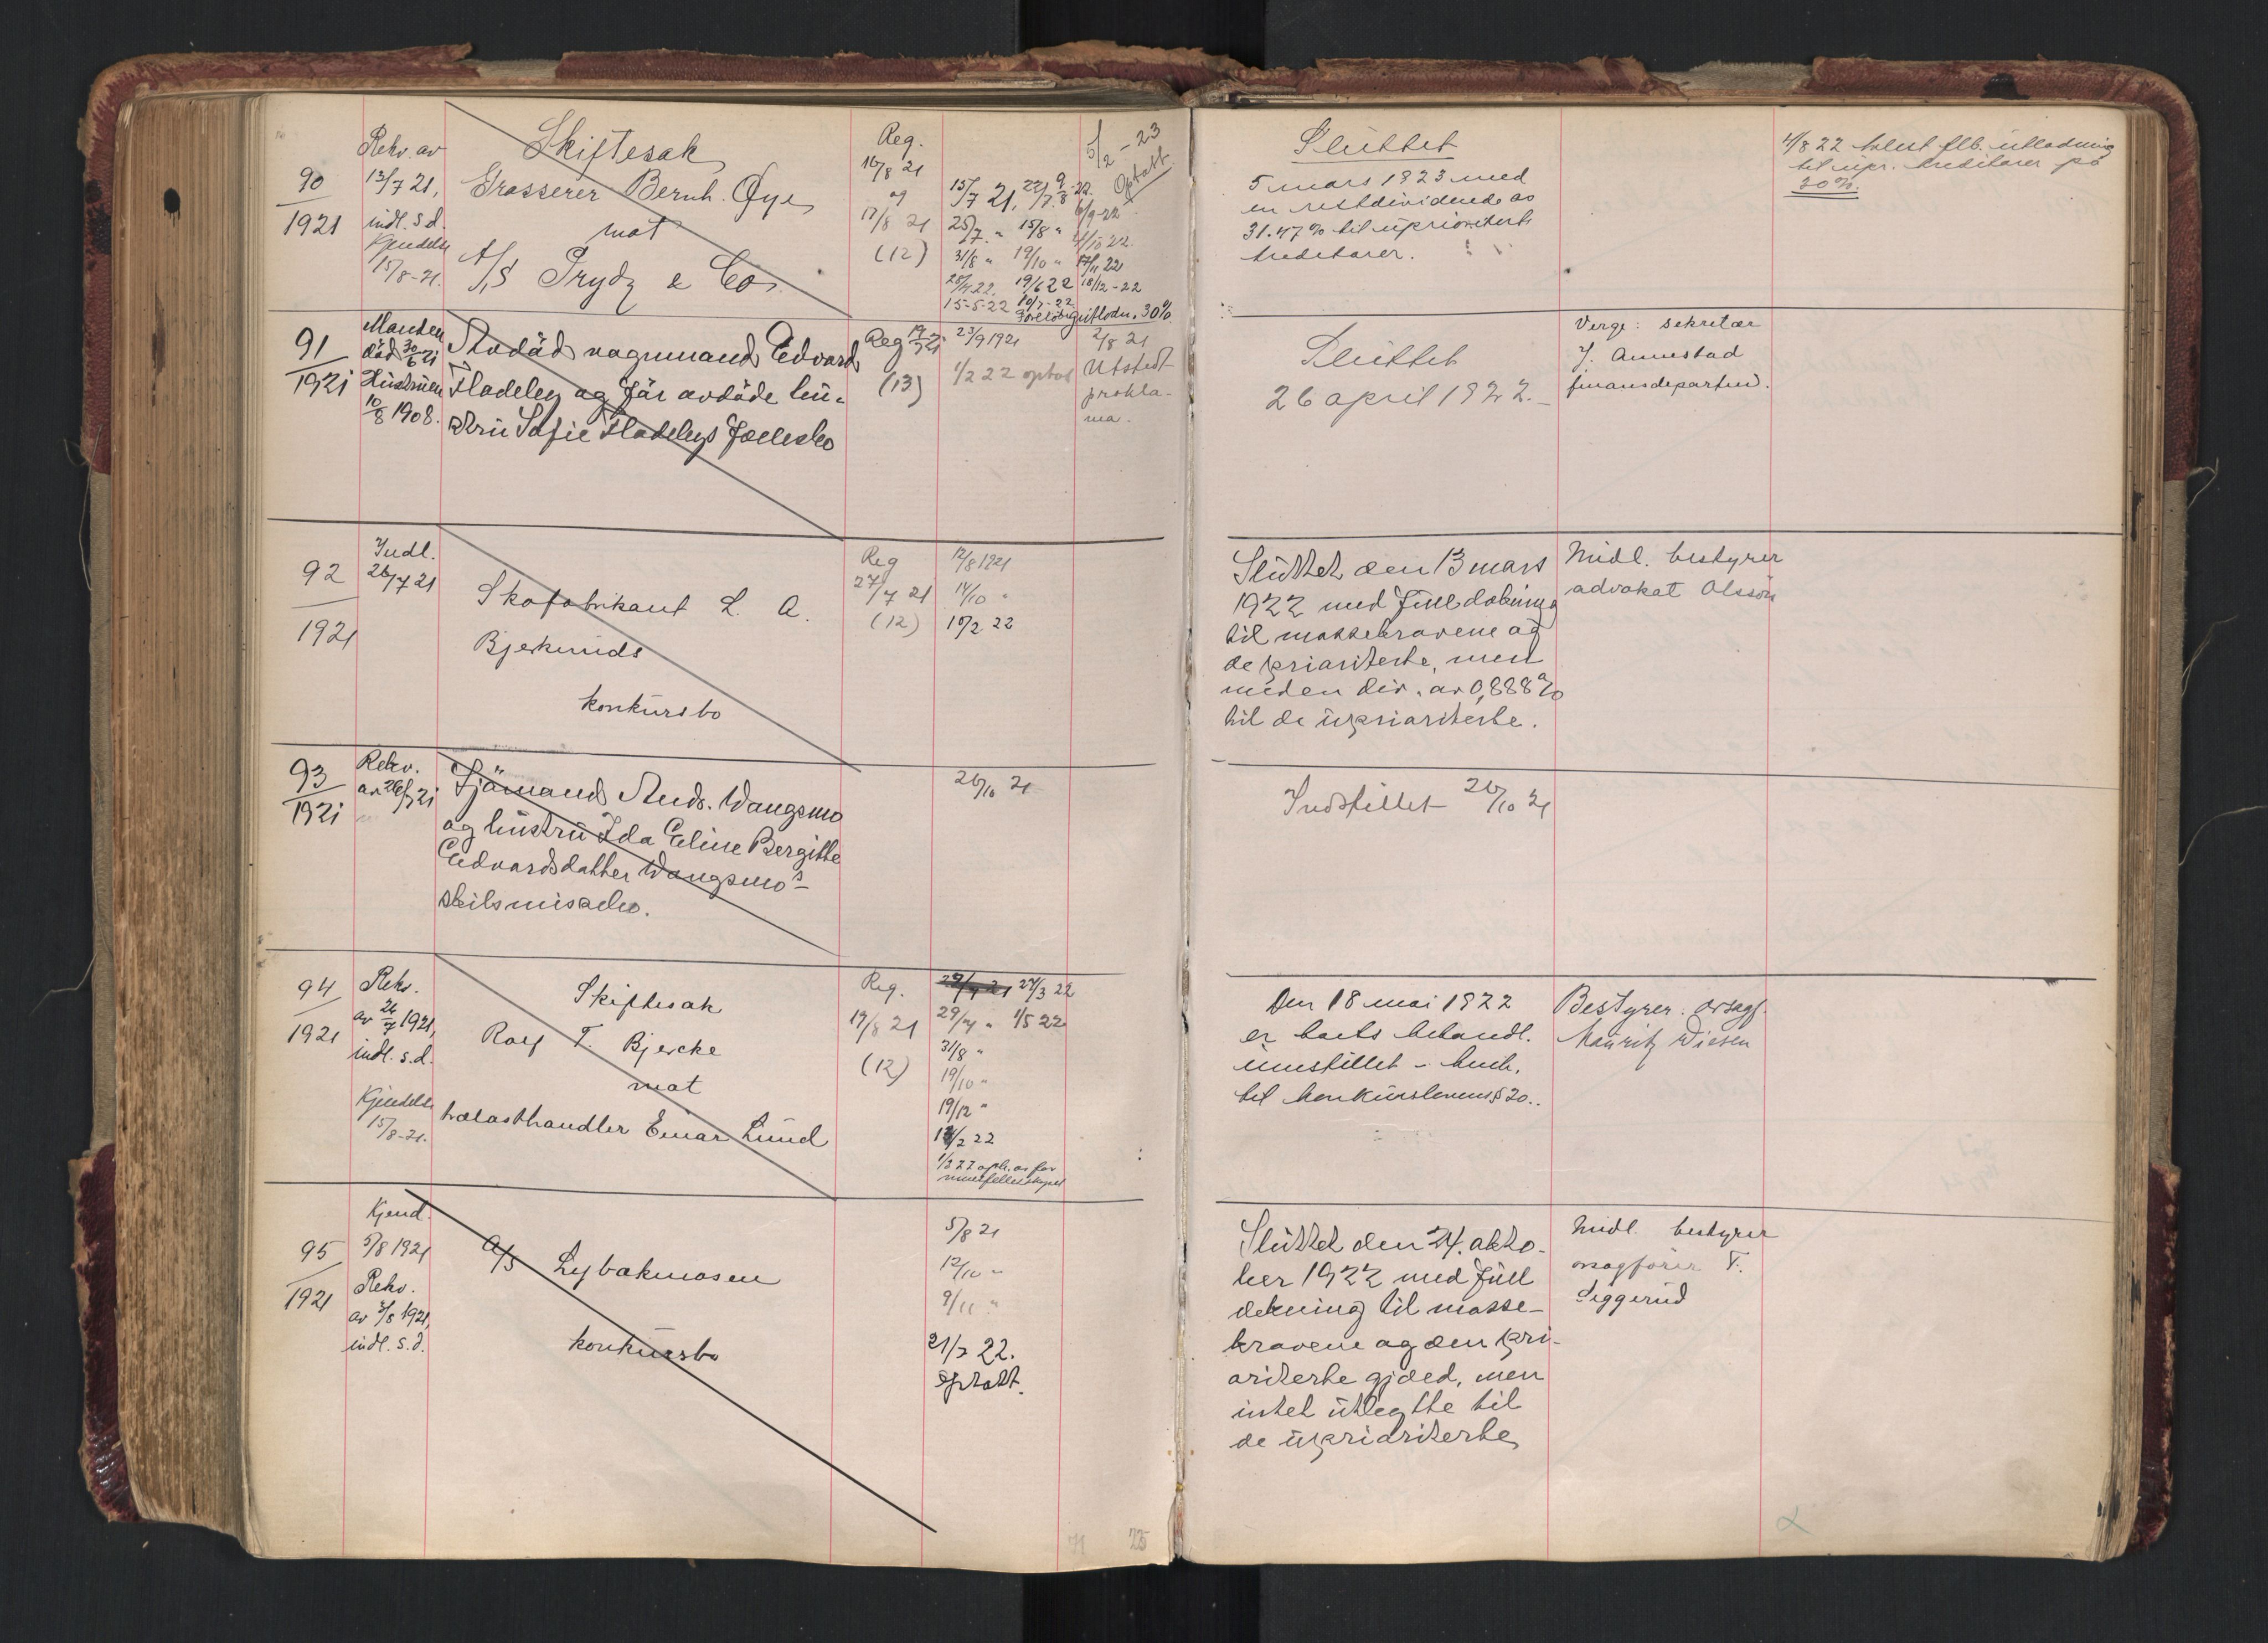 90
1921
Rekv. av
13/7 21,
indl. s.d.
Kjendelse
15/8-21.
Skiftesak
Grosserer Bernh. Øye
mot
A/S Prydz & Co.
Reg.
16/8 21
og
17/8 21
(12)
15/7 21, 22/7. 9/8-22.
25/7. " 15/8 " 6/9-22
31/8 " 19/10 " 11/10 22.
25/4 22. 19/6 22 18/12-22
15-5-22 10/7-22
Foreløbig utlodn. 30%
17/11 22
5/2-23
Optatt
Sluttet
5 mars 1923 med
en restdividende av
31.47% til uprioriterte
kreditorer.
4/8 22 blest flb. utlodning
til upr. kreditorer på
30%.
91
1921
Manden
död 30/6 21
Hustruen
10/8 1908.
Avdöd vognmand Edvard
Fladeby og för avdöde hu-
stru Sofie Fladebys fællesbo
Reg 19/7 21
(13)
23/9 1921
1/2 22 optat
2/8 21
Utstedt
prokla-
ma.
Sluttet
26 april 1922.-
Verge: sekretær
J. Aunestad
finansdepartem.
92
1921
Indl.
26/7 21
Skofabrikant L. A.
Bjerkunds
konkursbo
Reg
27/7 21
(12)
12/8 1921
14/10 "
10/2 22
Sluttet den 13 mars
1922 med full dækning
til massekravene og
de prioriterte, men
uten div. av 0,888%
til de uprioriterte.
Midl. bestyrer
advokat Olssön
93
1921
Rekv.
av 26/7 21
Sjömand Andr. Wangsmo
og hustru Ida Eline Bergitte
Edvardsdatter Wangsmo's
skilsmissebo.
26/10 21
Indstillet 26/10 21
94
1921
Rekv.
av 26/7 1921,
indl. s.d.
Kjendelse
15/8-21.
Skiftesak
Rolf T. Bjercke
mot
trælasthandler Einar Lund
Reg.
17/8 21
(12)
24/3 22
29/7 " 1/5 22
31/8 "
19/10 "
19/12 "
14/2 22
1/3 22 oph. av for
muefellesskapet
Den 18 mai 1922
er boets behandl.
innstillet - henh.
til konkurslovens § 20..
Bestyrer: orsagf.
Mauritz Diesen
95
1921
Kjend.
5/8 1921
Rekv.
av 3/8 1921,
indl. s.d.
A/S Lybakmosen
konkursbo
5/8 21
12/10 "
9/11 "
21/7 22.
Optatt.
Sluttet den 24. okto-
ber 1922 med full
dekning til masse-
kravene og den pri-
oriterte gjæld, men
intet utlegtte til
de uprioriterte
Midl. bestyrer
orsagförer T.
Seggerud
25